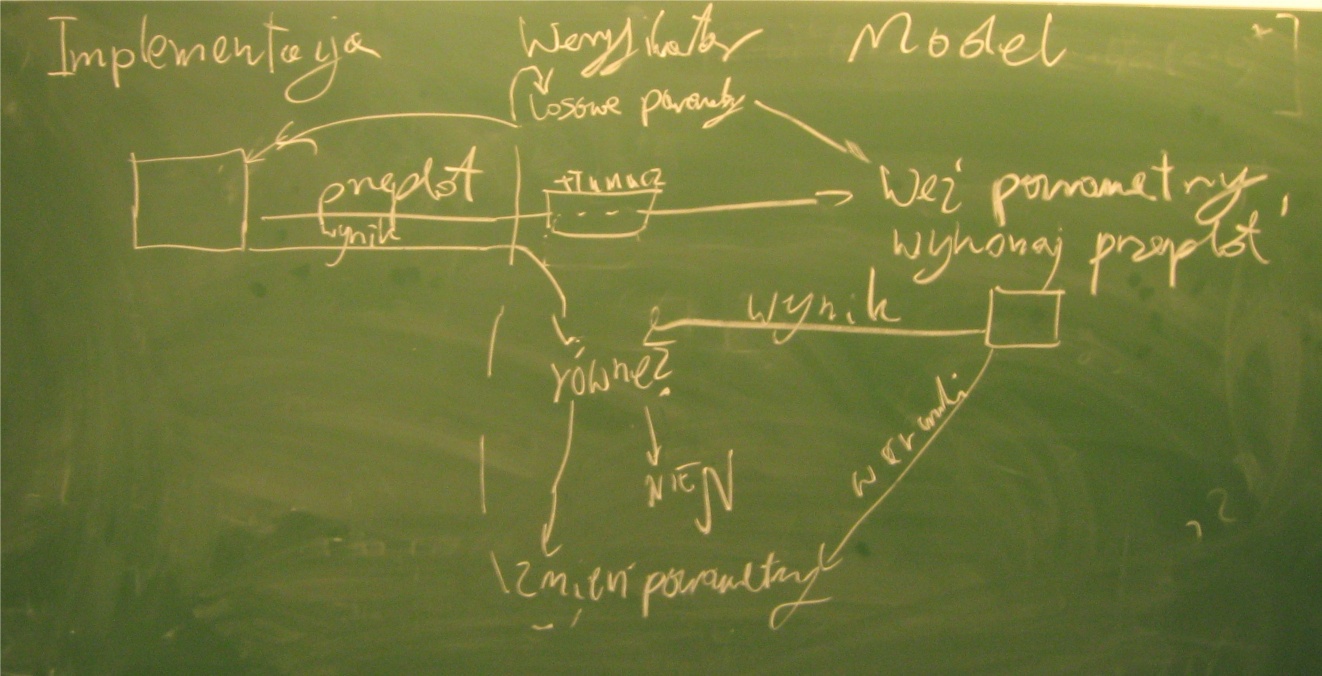 Implementacja
Weryfikator
Model
Losowe parametry
przeplot
wynik
Tłumacz
Weź parametry
wykonaj przeplot
wynik
równe?
NIE
warunki
Zmień parametry